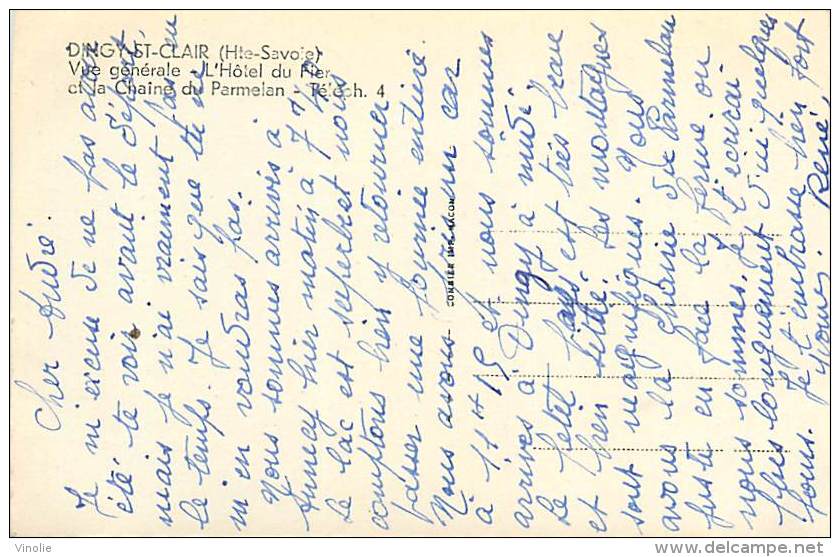 DINGY-ST-CLAIR (Hte-Savoie)
Vue générale - L'Hôtel du Fier
et la Chaîne du Parmelan - Téléph. 4
COMBIER IMP. MACON
Cher André.
Je m'excuse de ne pas avoir
été te voir avant le départ,
mais je n'ai vraiment pas eu
le temps. Je sais que tu ne
m'en voudras pas.
Nous sommes arrivés à
Annecy hier matin à 7h½
Le lac est superbe et nous
comptons bien y retourner
passer une journée entière.
Nous avons un car
à 11H15 et nous sommes
arrivés à Dingy à midi.
Le petit pays est très beau
et bien situé. Les montagnes
sont magnifiques. Nous
avons la chaîne du Parmelan
juste en face la ferme où
nous sommes. Je t'écrirai
plus longuement d'ici quelques
jours. Je t'embrasse bien fort
René
www.delcampe.net
Vinolie